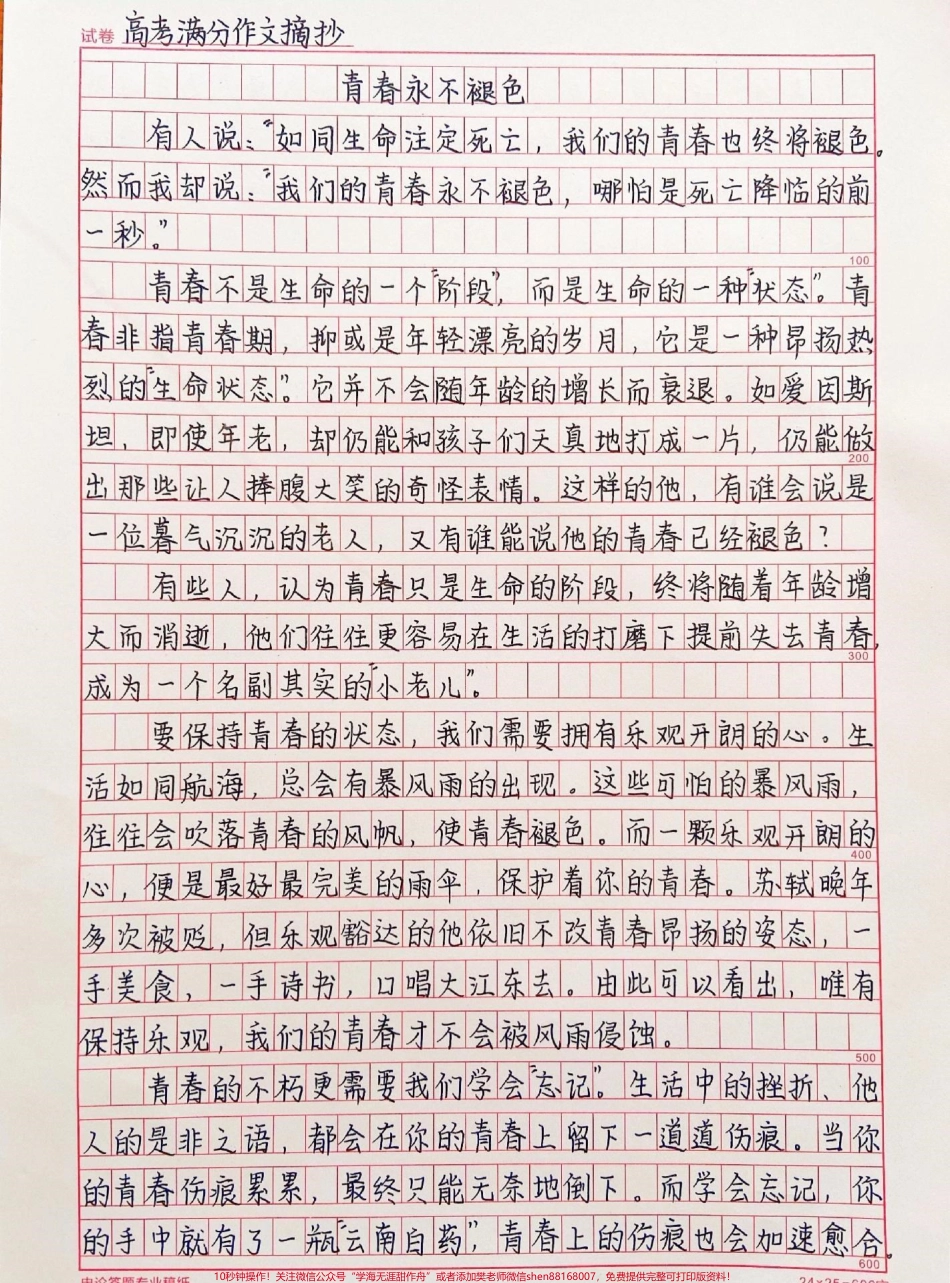 试卷 高考满分作文摘抄
青春永不褪色
有人说：“如同生命注定死亡，我们的青春也终将褪色。
然而我却说：“我们的青春永不褪色，哪怕是死亡降临的前
一秒。”
100
青春不是生命的一个“阶段”，而是生命的一种“状态”。青
春非指青春期，抑或是年轻漂亮的岁月，它是一种昂扬热
烈的“生命状态”。它并不会随年龄的增长而衰退。如爱因斯
坦，即使年老，却仍能和孩子们天真地打成一片，仍能做
200
出那些让人捧腹大笑的奇怪表情。这样的他，有谁会说是
一位暮气沉沉的老人，又有谁能说他的青春已经褪色？
有些人，认为青春只是生命的阶段，终将随着年龄增
大而消逝，他们往往更容易在生活的打磨下提前失去青春，
300
成为一个名副其实的“小老儿”。
要保持青春的状态，我们需要拥有乐观开朗的心。生
活如同航海，总会有暴风雨的出现。这些可怕的暴风雨，
往往会吹落青春的风帆，使青春褪色。而一颗乐观开朗的
400
心，便是最好最完美的雨伞，保护着你的青春。苏轼晚年
多次被贬，但乐观豁达的他依旧不改青春昂扬的姿态，一
手美食，一手诗书，口唱大江东去。由此可以看出，唯有
保持乐观，我们的青春才不会被风雨侵蚀。
500
青春的不朽更需要我们学会“忘记”。生活中的挫折、他
人的是非之语，都会在你的青春上留下一道道伤痕。当你
的青春伤痕累累，最终只能无奈地倒下。而学会忘记，你
的手中就有了一瓶“云南白药”，青春上的伤痕也会加速愈合。
600
10秒钟操作！关注微信公众号“学海无涯甜作舟”或者添加樊老师微信shen88168007，免费提供完整可打印版资料！